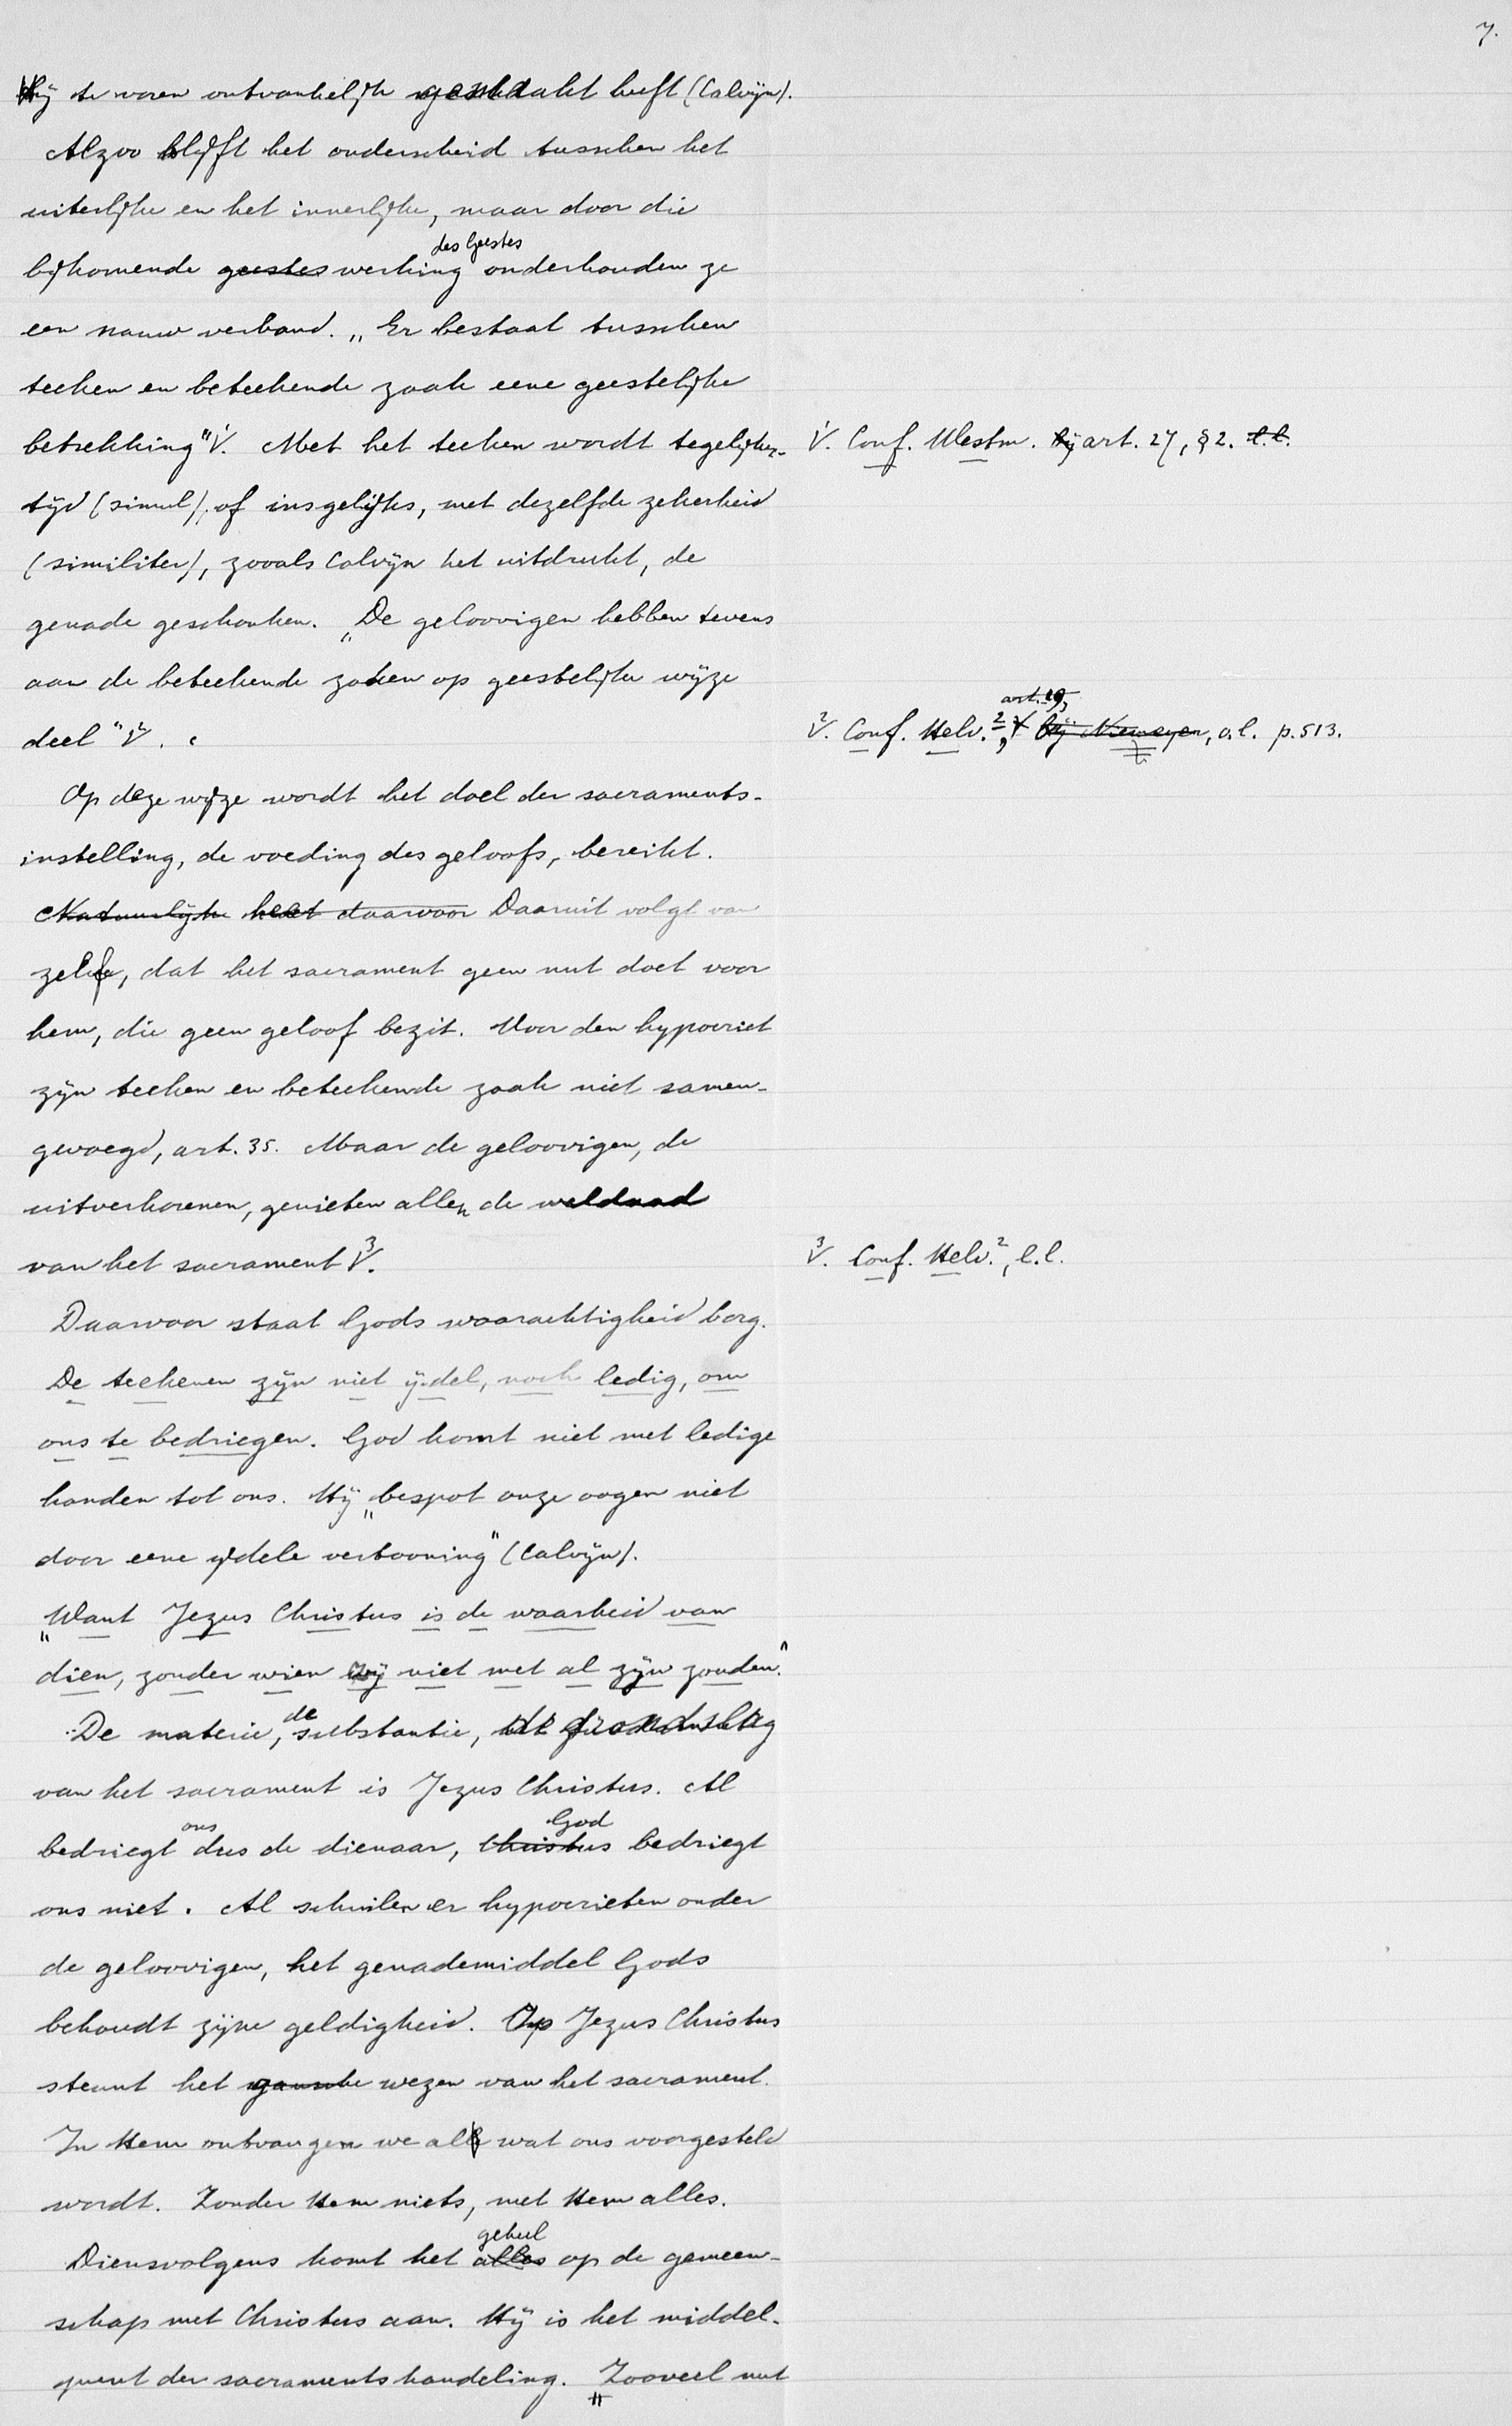 7.
Hij te voren ontvankelijk gemaakt heeft (Calvijn).
Alzoo blijft het onderscheid tusschen het
uiterlijke en het innerlijke, maar door die
des Geestes
bijkomende geestes werking onderhouden ze
een nauw verband. „Er bestaat tusschen
teeken en beteekende zaak eene geestelijke
betrekking" 1). Met het teeken wordt tegelijker-
tijd (simul), of insgelijks, met dezelfde zekerheid
(similiter), zooals Calvijn het uitdrukt, de
genade geschonken. „De geloovigen hebben tevens
aan de beteekende zaken op geestelijke wijze
deel" 2).
Op deze wijze wordt het doel der sacraments-
instelling, de voeding des geloofs, bereikt.
Natuurlijk heet daarvoor Daaruit volgt van
zelf, dat het sacrament geen nut doet voor
hem, die geen geloof bezit. Voor den hypocriet
zijn teeken en beteekende zaak niet samen-
gevoegd, art. 35. Maar de geloovigen, de
uitverkorenen, genieten allen de weldaad
van het sacrament 3).
Daarvoor staat Gods waarachtigheid borg.
De teekenen zijn niet ijdel, noch ledig, om
ons te bedriegen. God komt niet met ledige
handen tot ons. Hij „bespot onze oogen niet
door eene ijdele vertooning" (Calvijn).
„Want Jezus Christus is de waarheid van
dien, zonder wien zij niet met al zijn zouden."
De materie, de substantie,
van het sacrament is Jezus Christus. Al
ons God
bedriegt dus de dienaar, Christus bedriegt
ons niet. Al schuilen er hypocrieten onder
de geloovigen, het genademiddel Gods
behoudt zijne geldigheid. Op Jezus Christus
steunt het gansche wezen van het sacrament.
In Hem ontvangen we al wat ons voorgesteld
wordt. Zonder Hem niets, met Hem alles.
geheel
Diensvolgens komt het alles op de gemeen-
schap met Christus aan. Hij is het middel-
punt der sacramentshandeling. „Zooveel nut
1). Conf. Westm. bij art. 27, § 2. l.l.
art. 19,
2). Conf. Helv. 2, bij Niemeyer, o.l. p. 513.
3). Conf. Helv. 2, l.l.